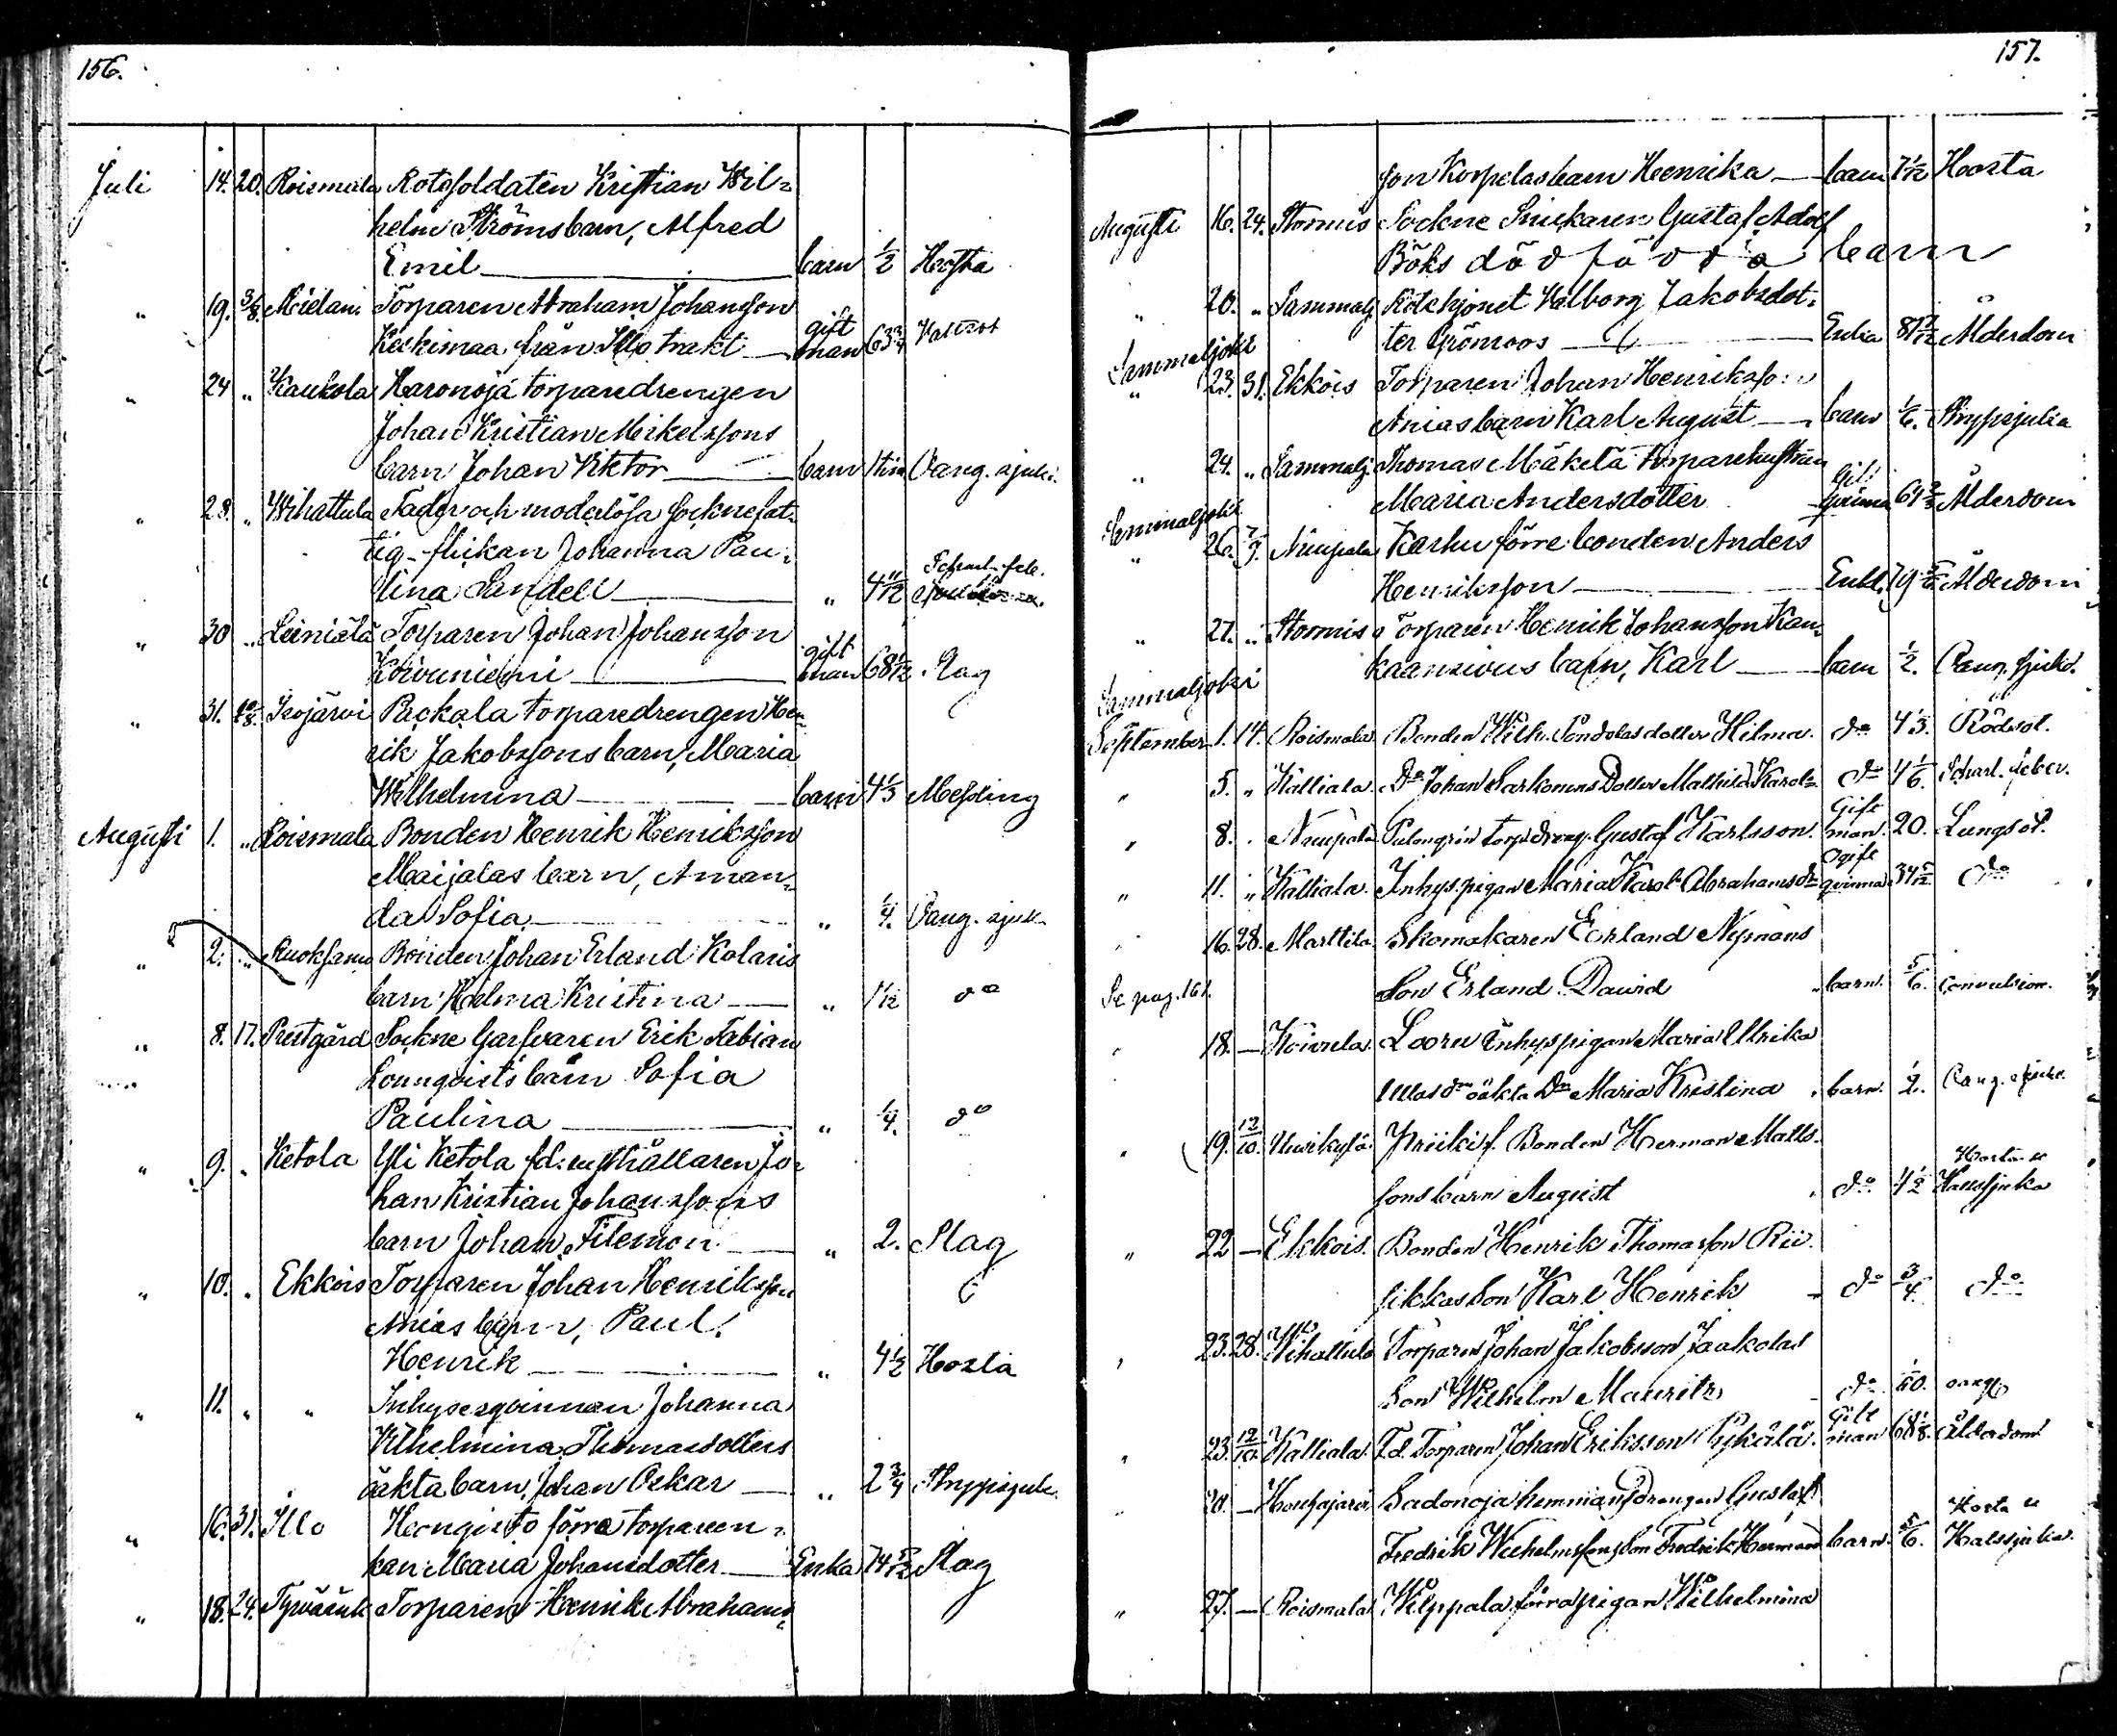 156.
Juli 14. 20. Roismala Rotesoldaten Kristian Wil-
helm Ströms barn, Alfred
Emil barn 1/2 Hosta
" 19. 3/8. Torparen Abraham Johansson
Keskimaa från Illo trakt gift man 63 3/4
" 24 " Kaukola Haronoja torparedrengen
Johan Kristian Mikelssons
barn Johan Viktor barn 1 tim Vang. sjuk.
" 28. " Wihattula Fader och moderlösa Sockne fat-
tig-flickan Johanna Pau-
lina Sandell " 4 11/12
" 30 " Leiniälä Torparen Johan Johansson
Koivuniemi gift man 68 1/12 Slag
" 31. 10/8. Isojärvi Packala torparedrengen Hen-
rik Jakobssons barn, Maria
Wilhelmina barn 4 1/3 Messling
Augusti 1. " Roismala Bonden Henrik Henriksson
Maijalas barn, Aman-
da Sofia " 1/4. Vang. sjuk
" 2. " Ruoksamo Bonden Johan Erland Kolaris
barn Halma Kristina " 1 1/12 do
" 8. 17. Prestgård Sockne Garfvaren Erik Fabian
Lounqvists barn Sofia
Paulina " 1/4. do
" 9. " Ketola Yli Ketola fd: rusthållaren Jo-
han Kristian Johanssons
barn Johan Filemon " 2. Slag
" 10. " Ekkois Torparen Johan Henriksson
Anias barn, Paul
Henrik " 4 1/2 Hosta
" 11. " " Inhysesqvinnan Johanna
Vilhelmina Thomasdotters
oäkta barn, Johan Oskar " 2 3/4 Strypsjuk.
" 16. 31. Illo Heongisto förra torpareen-
kan Maria Johansdotter Enka 74 5/12 Slag
" 18. 24. Tyrväänk Torparen Henrik Abrahams-
157.
son Korpelas barn Henrika barn 7 1/2 Hosta
Augusti 16. 24. Stormis Sockne Snickaren Gustaf Adolf
Böks död födda barn
" 20. " Sammalj Rotehjonet Walborg Jakobsdot-
Sammaljoki ter Grönroos Enka 81 7/12 Ålderdom
" 23. 31. Ekkois Torparen Johan Henrikssons
Anias barn Karl August barn 1/6. Strypsjuka
" 24. " Sammalj. Thomas Mäkelä torparehustrun
Sammaljoki Maria Andersdotter Gift qvinna 61 2/3 Ålderdom
" 26. 7/9. Nuupala Karhu förre bonden Anders
Henriksson Enkl. 79 5/6 Ålderdom
" 27. " Stormis Torparen Henrik Johansson Kan-
Sammaljoki kaansivus barn, Karl barn 1/2. Vang. sjukd.
September 1. 14. Roismala Bonden Wilh. Pöndolas dotter Hilma. do 4 1/3. Rödsot.
" 5. " Kalliala. Do Johan Sarkonens Dotter Mathilda Karol. do 4 1/6. Scharl. feber.
" 8. " Nuupala Palongrin torp.dreng. Gustaf Karlsson. Gift man. 20. Lungsot.
" 11. " Kalliala. Inhys.pigan Maria Karol. Abrahamsdr Ogift qvinna 34 5/12 do
" 16. 28. Marttila. Skomakaren Erland Nymans
Se pag. 161. Son Erland David barn. 5/6. Convulsion.
" 18. — Koivula. Looru Inhyspigan Maria Ulrika
Ullasdrs oäkta Dr Maria Kristina barn. 1/2. Vang. sjuk.
" 19. 12/10. Uusikylä. Yriiki f. Bonden Herman Matts-
sons barn August do 4 1/2 Hosta u Halssjuka
" 22 — Ekkois. Bonden Henrik Thomasson Rii-
sikkas Son Karl Henrik do 3/4 do
" 23. 28. Wihattula Torparen Johan Jakobsson Jaakolas
Son Wilhelm Mauritz do 1/50.
" 23. 12/10. Kalliala. F.d. Torparen Johan Eriksson Pykälä. Gift man 68 1/8. Ålderdom
" 20. — Houhajärvi Sadonoja hemmansdrengen Gustaf
Fredrik Wilhelmssons Son Fredrik Herman barn. 5/6. Hosta u Halssjuka.
" 27. — Roismala Wilppala förra pigan Wilhelmina